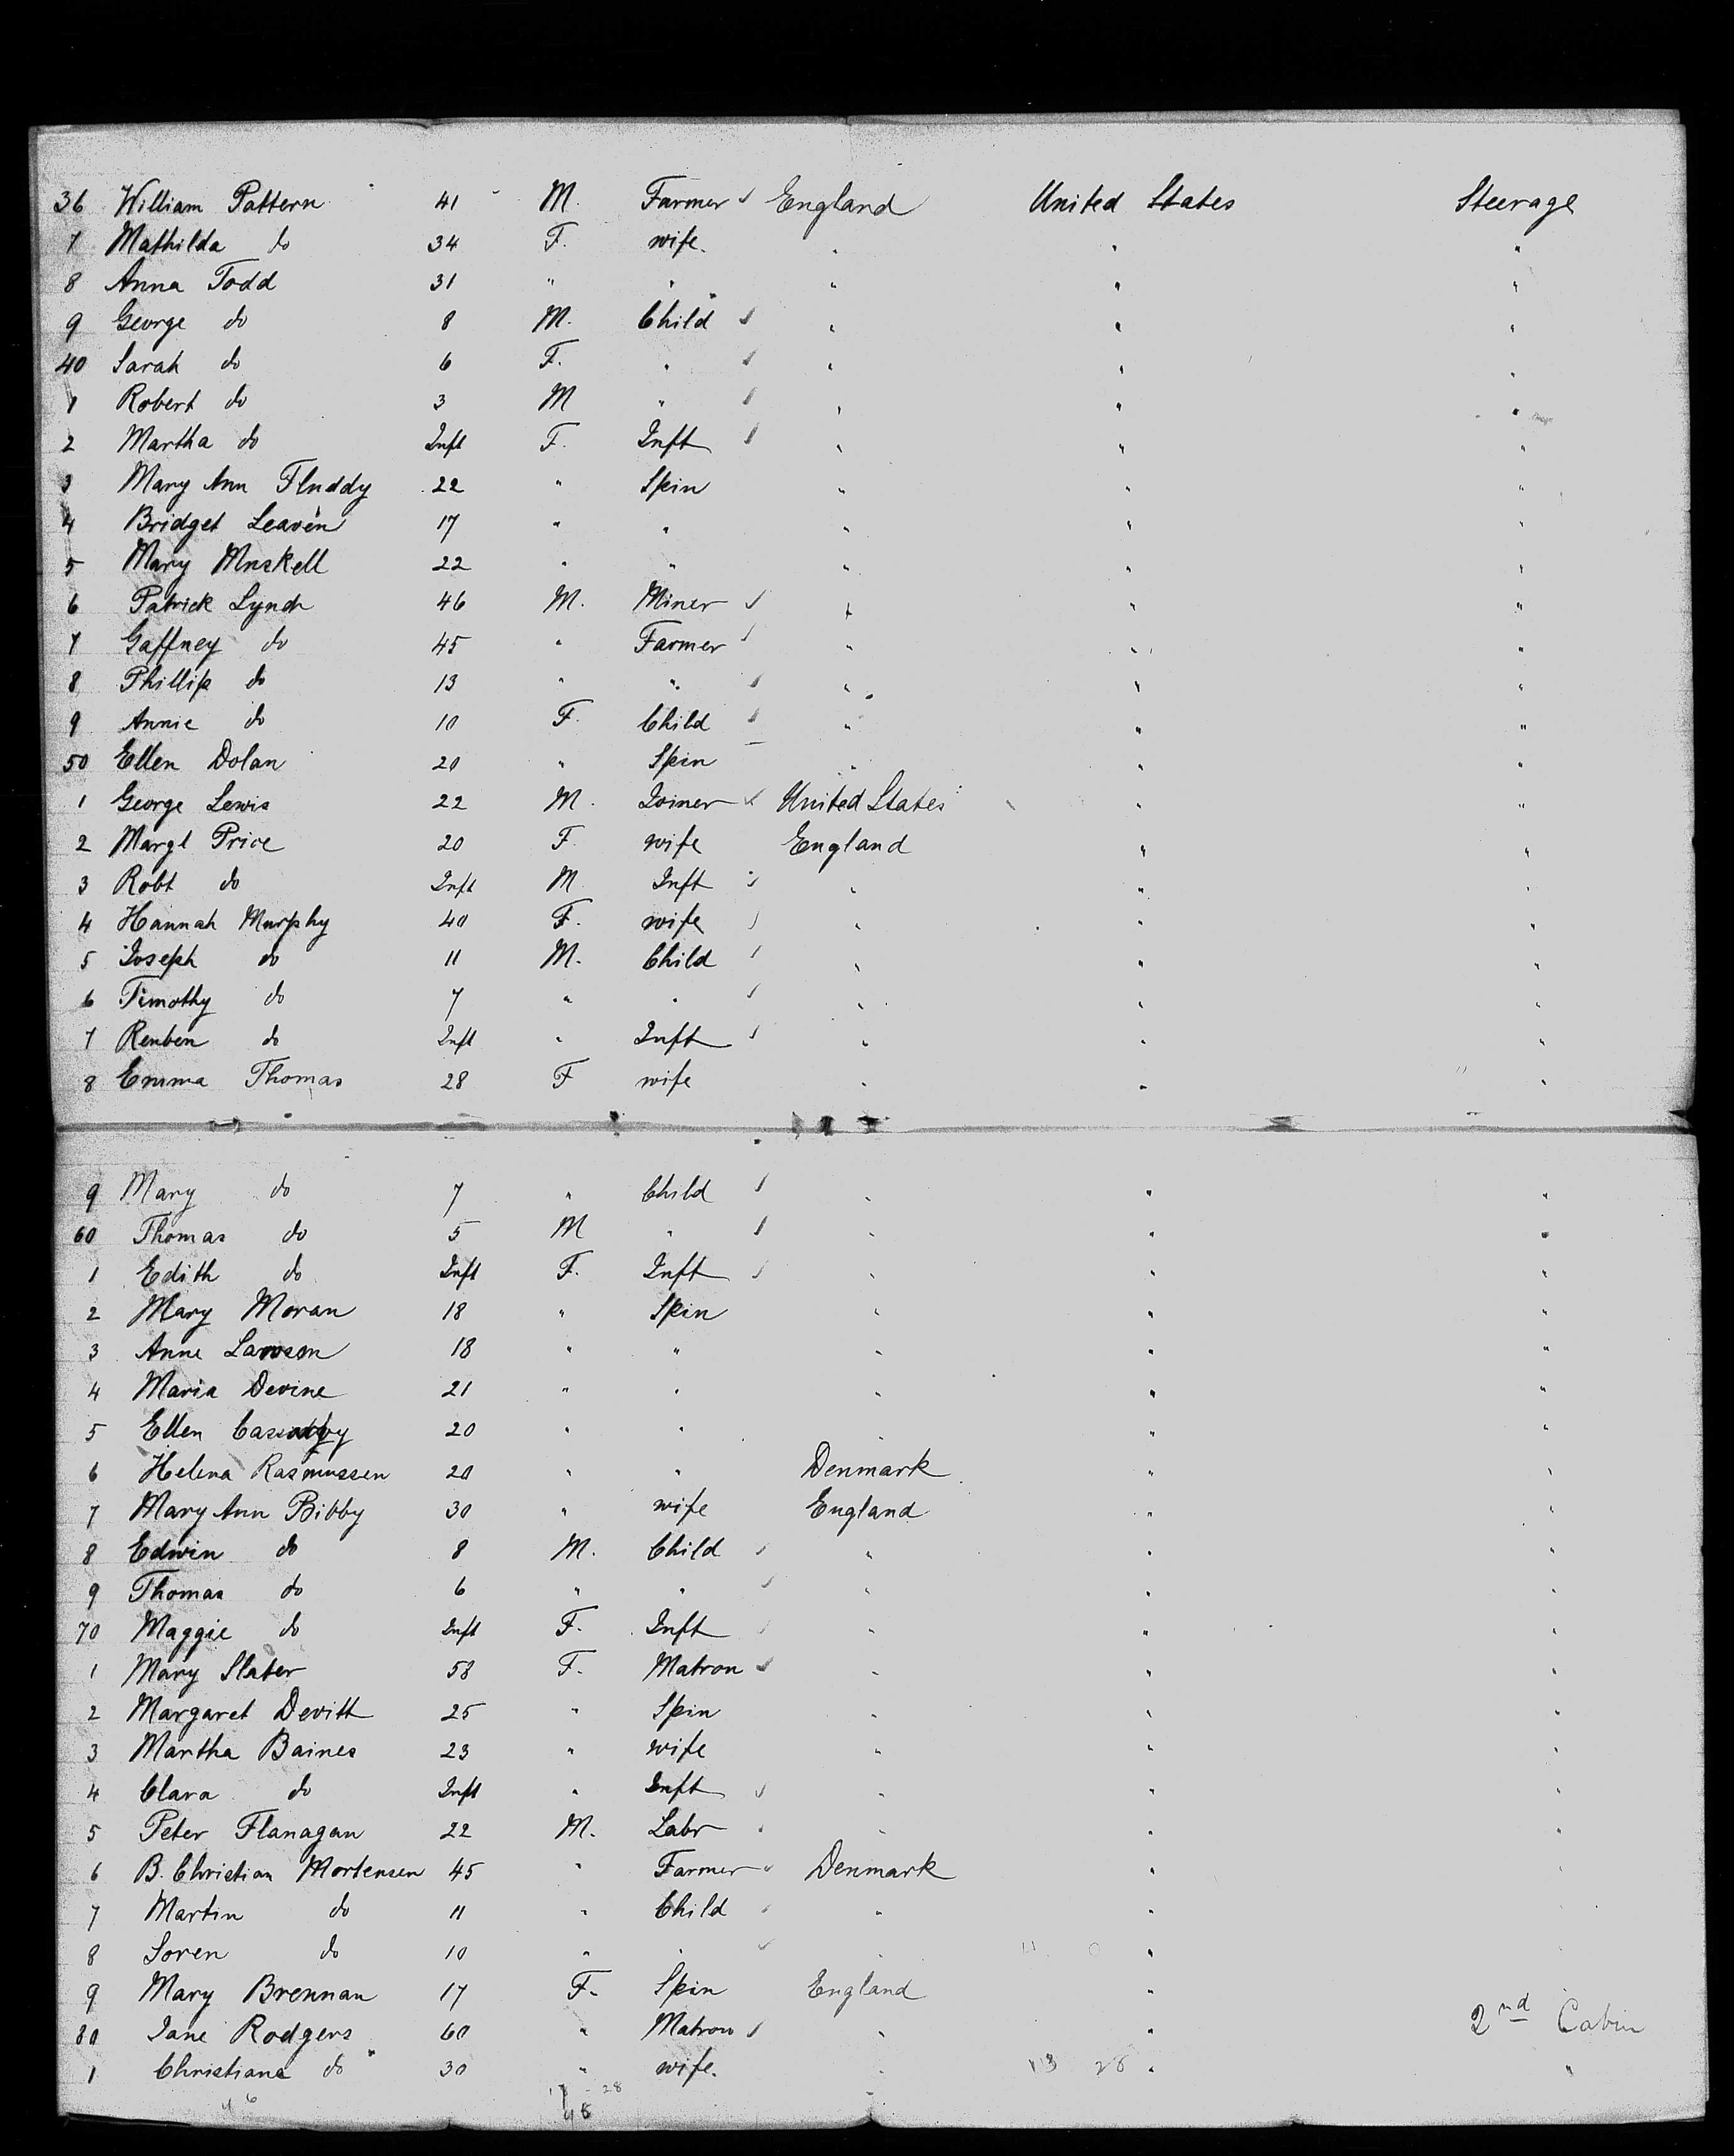 36 William Pattern 41 M. Farmer England United States Steerage
7 Mathilda do 34 F. wife. " " "
8 Anna Todd 31 " " " " "
9 George do 8 M. Child " " "
40 Sarah do 6 F. " " " "
1 Robert do 3 M " " " "
2 Martha do Inft F. Inft " " "
3 Mary Ann Fluddy 22 " Spin " " "
4 Bridget Leaven 17 " " " " "
5 Mary Muskell 22 " " " " "
6 Patrick Lynch 46 M. Miner " " "
7 Gaffney do 45 " Farmer " " "
8 Phillip do 13 " " " " "
9 Annie do 10 F. Child " " "
50 Ellen Dolan 20 " Spin " " "
1 George Lewis 22 M. Joiner United States " "
2 Margt Price 20 F. wife England " "
3 Robt do Inft M Inft " " "
4 Hannah Murphy 40 F. wife " " "
5 Joseph do 11 M. Child " " "
6 Timothy do 7 " " " " "
7 Reuben do Inft " Inft " " "
8 Emma Thomas 28 F wife " " "
9 Mary do 7 " Child " " "
60 Thomas do 5 M " " " "
1 Edith do Inft F. Inft " " "
2 Mary Moran 18 " Spin " " "
3 Anne Lawson 18 " " " " "
4 Maria Devine 21 " " " " "
5 Ellen 20 " " " " "
6 Helena Rasmussen 20 " " Denmark " "
7 Mary Ann Bibby 30 " wife England " "
8 Edwin do 8 M. Child " " "
9 Thomas do 6 " " " " "
70 Maggie do Inft F. Inft " " "
1 Mary Slater 58 F. Matron " " "
2 Margaret Devitt 25 " Spin " " "
3 Martha Baines 23 " wife " " "
4 Clara do Inft " Inft " " "
5 Peter Flanagan 22 M. Labr " " "
6 B. Christian Mortensen 45 " Farmer Denmark " "
7 Martin do 11 " Child " "
8 Soren do 10 " " " "
9 Mary Brennan 17 F. Spin England "
80 Jane Rodgers 60 " Matron " " 2nd Cabin
1 Christiana do 30 " wife. " 13 28 " "